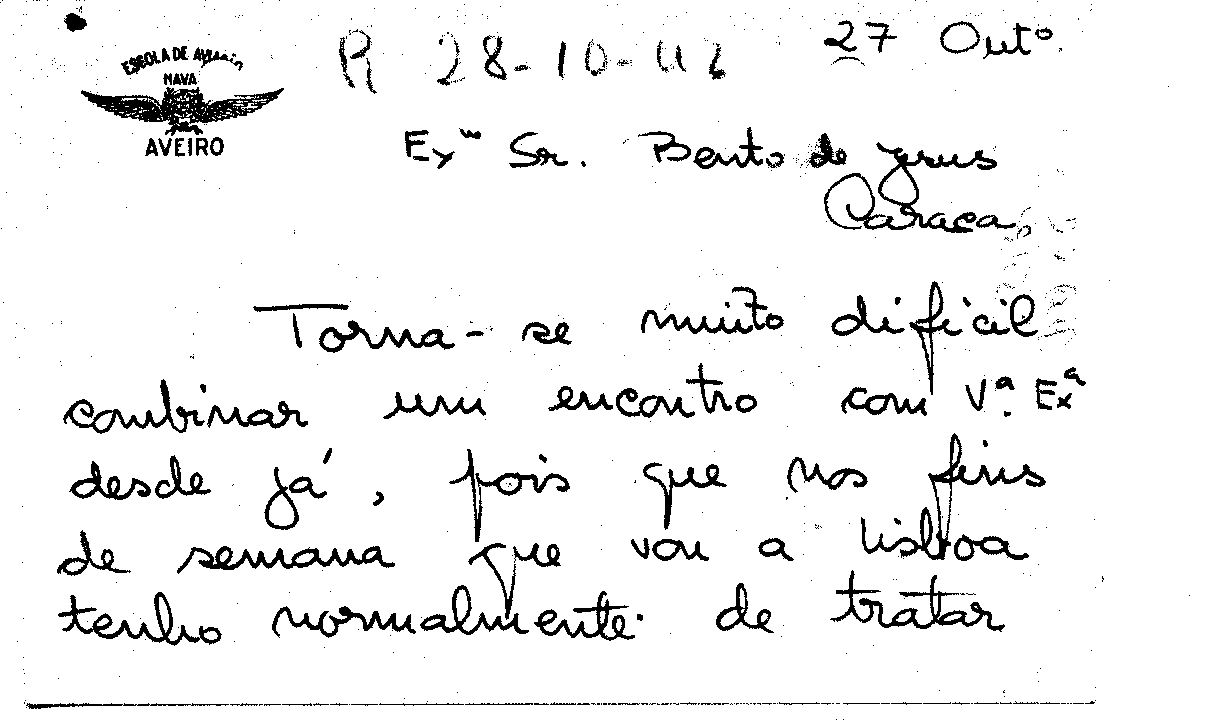 ESCOLA DE AVIAÇÃO
NAVAL
AVEIRO
R 28-10-42
27 Outº.
Exᵐ Sr. Bento de Jesus
Caraça,
Torna-se muito difícil
combinar um encontro com V.ª Exª
desde já, pois que nos fins
de semana que vou a Lisboa
tenho normalmente de tratar